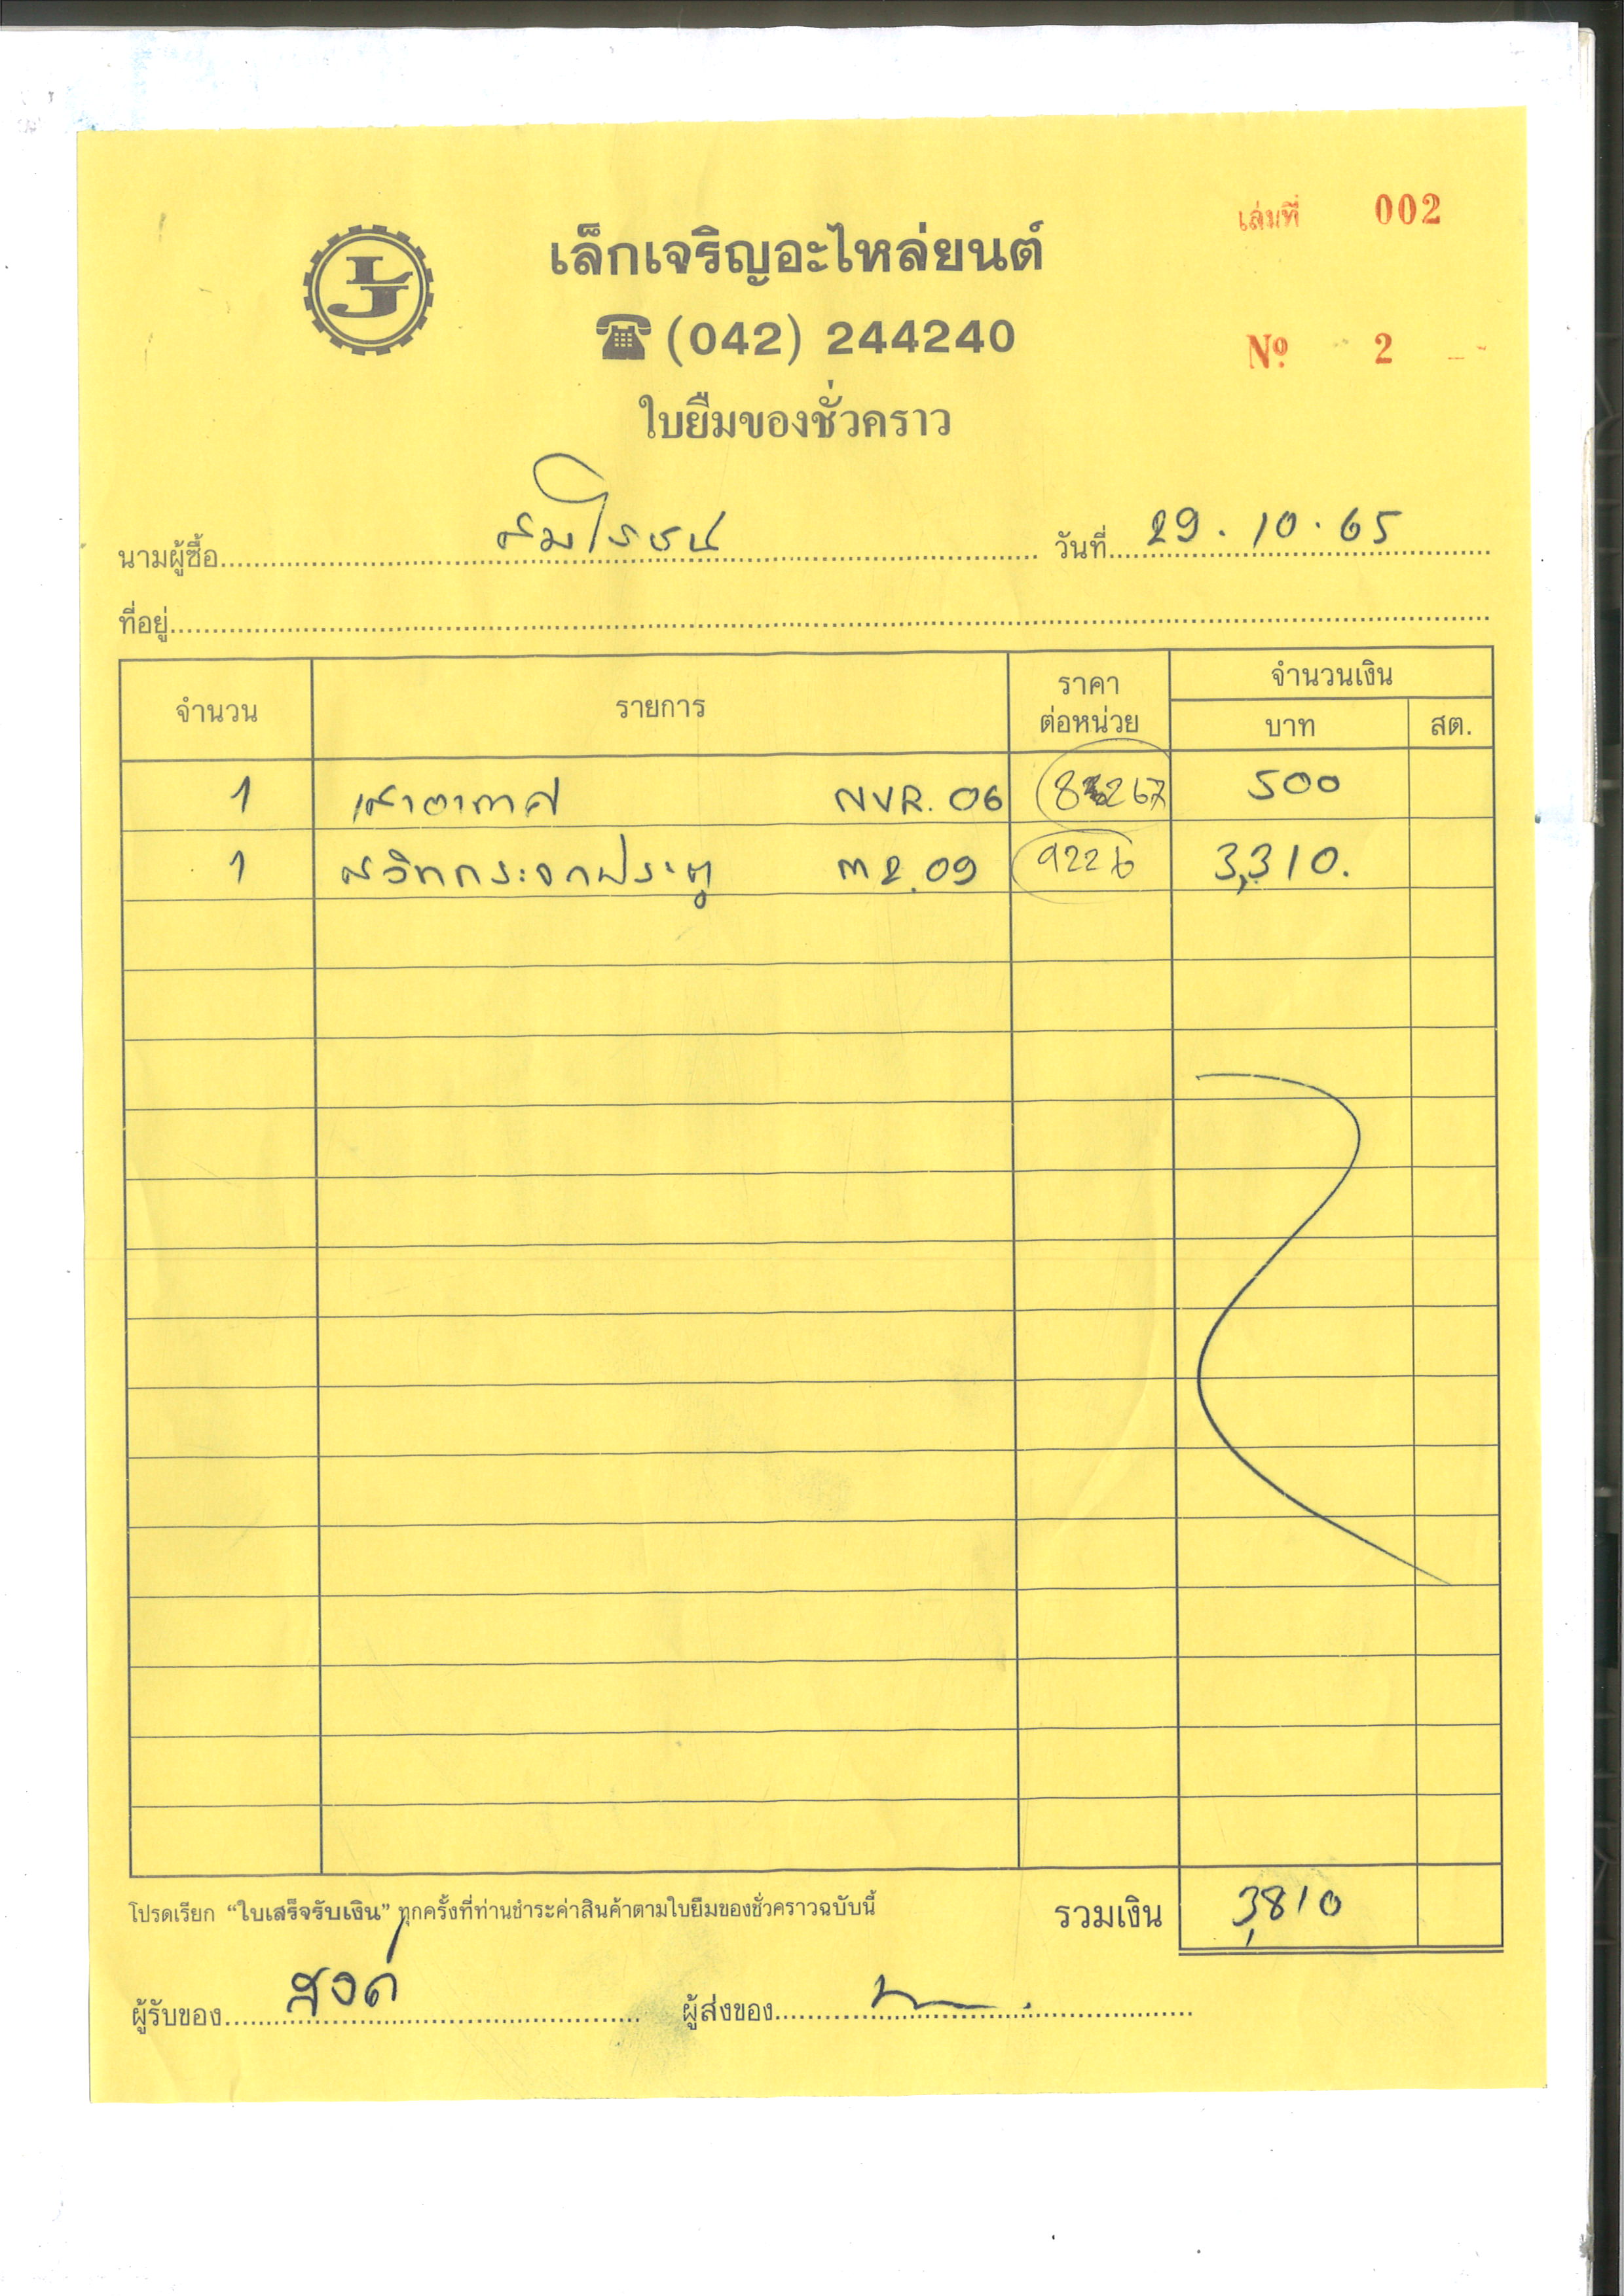 เล่มที่ 002
เล็กเจริญอะไหล่ยนต์
(042) 244240
Nº 2
ใบยืมของชั่วคราว
นามผู้ซื้อ วันที่ 29.10.65
ที่อยู่
จำนวน รายการ ราคาต่อหน่วย จำนวนเงิน
บาท สต.
1 เสาอากาศ NVR.06 500
1 สวิทกระจกประตู ท2.09 9226 3,310.
โปรดเรียก “ใบเสร็จรับเงิน” ทุกครั้งที่ท่านชำระค่าสินค้าตามใบยืมของชั่วคราวฉบับนี้ รวมเงิน 3,810
ผู้รับของ ผู้ส่งของ